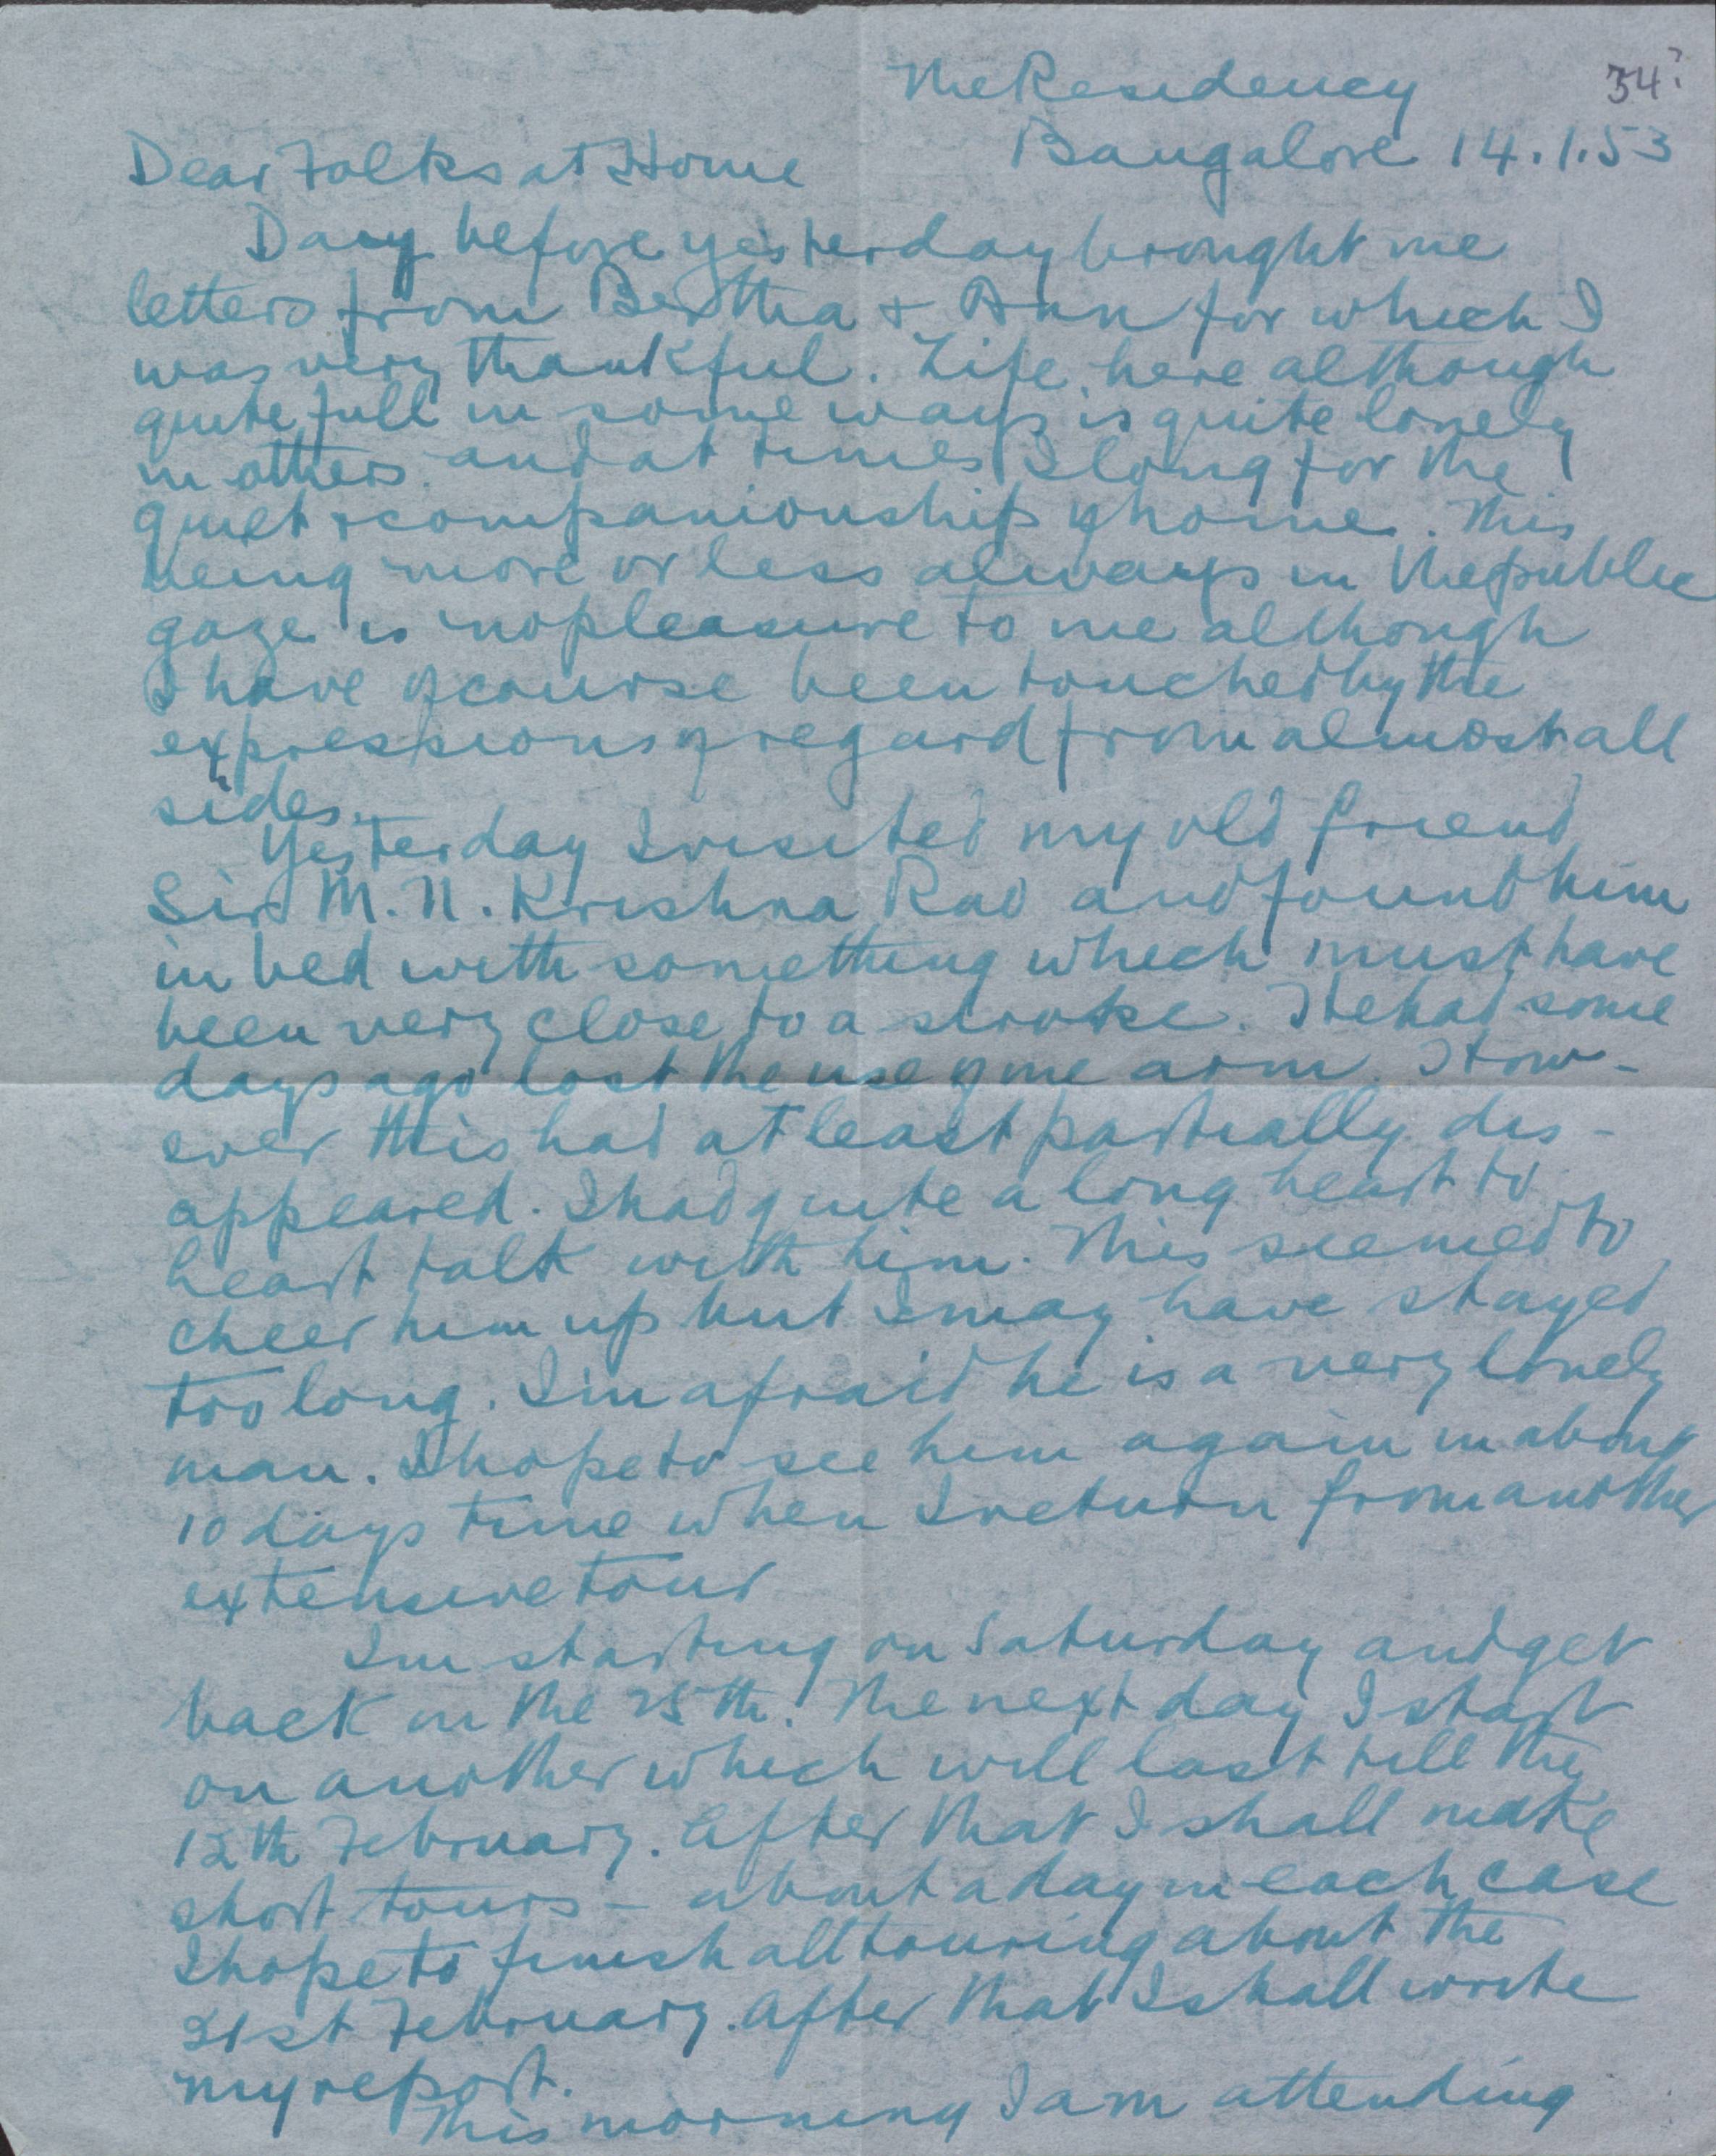 The Residency 34?
Bangalore 14.1.53
Dear Folks at Home
Day before yesterday brought me
letters from Bertha & Ann for which I
was very thankful. Life here although
quite full in some ways is quite lonely
in others and at times I long for the
quiet & companionship of home. This
being more or less always in the public
gaze is no pleasure to me although
I have of course been touched by the
expressions of regard from almost all
sides.
Yesterday I visited my old friend
Sir M. N. Krishna Rao and found him
in bed with something which must have
been very close to a stroke. He had some
days ago lost the use of one arm. How-
ever this had at least partially dis-
appeared. I had quite a long heart to
heart talk with him. This seemed to
cheer him up but I may have stayed
too long. I'm afraid he is a very lonely
man. I hope to see him again in about
10 days time when I return from another
extensive tour
I'm starting on Saturday and get
back on the 25th. The next day I start
on another which will last till the
12th February. After that I shall make
short tours – about a day in each case
I hope to finish all touring about the
21st February. After that I shall write
my report.
This morning I am attending